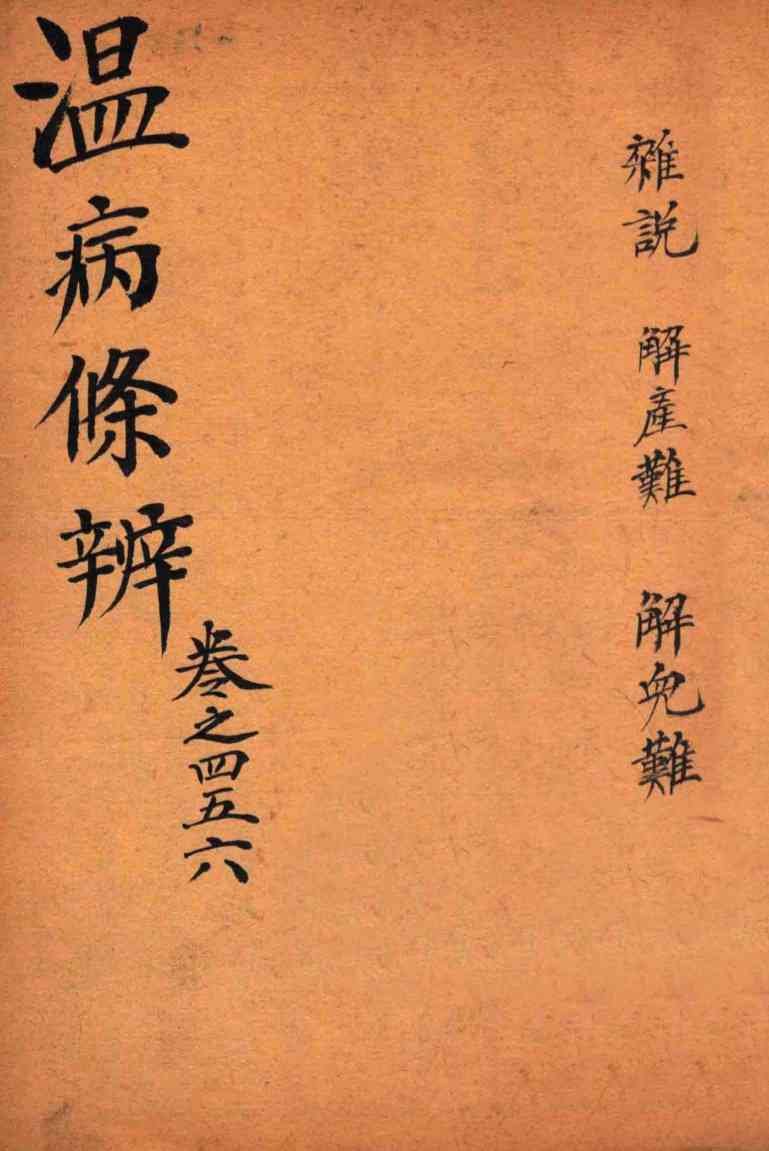 雜說 解產難 解兒難
温病條辨
卷之四五六